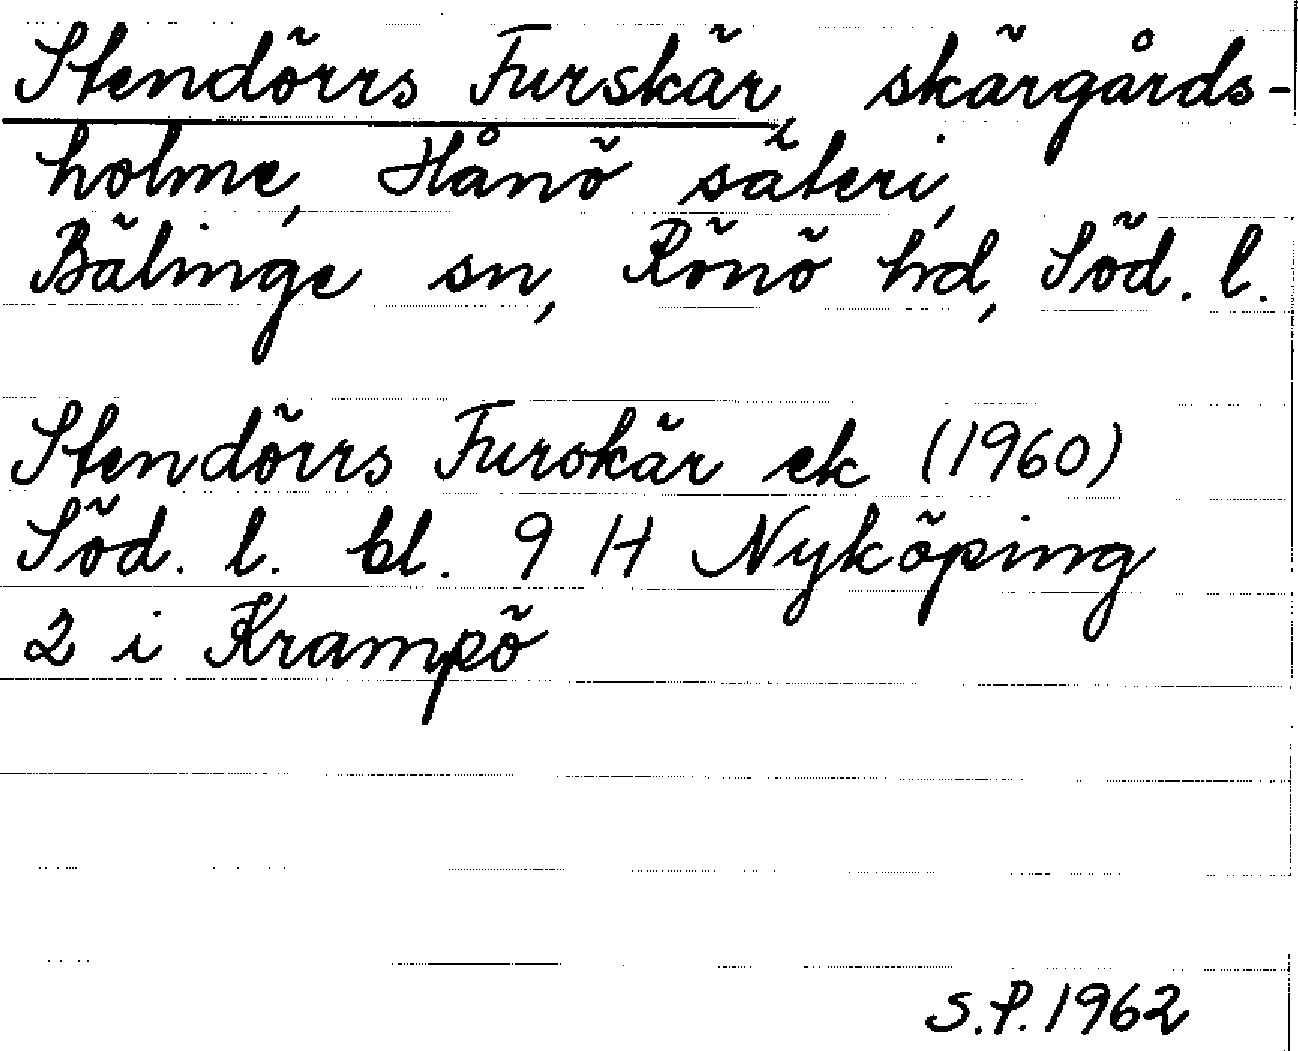 Stendörrs Furskär, skärgårds-
holme, Hånö säteri,
Bälinge sn, Rönö hd, Söd. l.
Stendörrs Furskär ek (1960)
Söd. l. bl. 9 H Nyköping
2 i Krampö
S.P. 1962